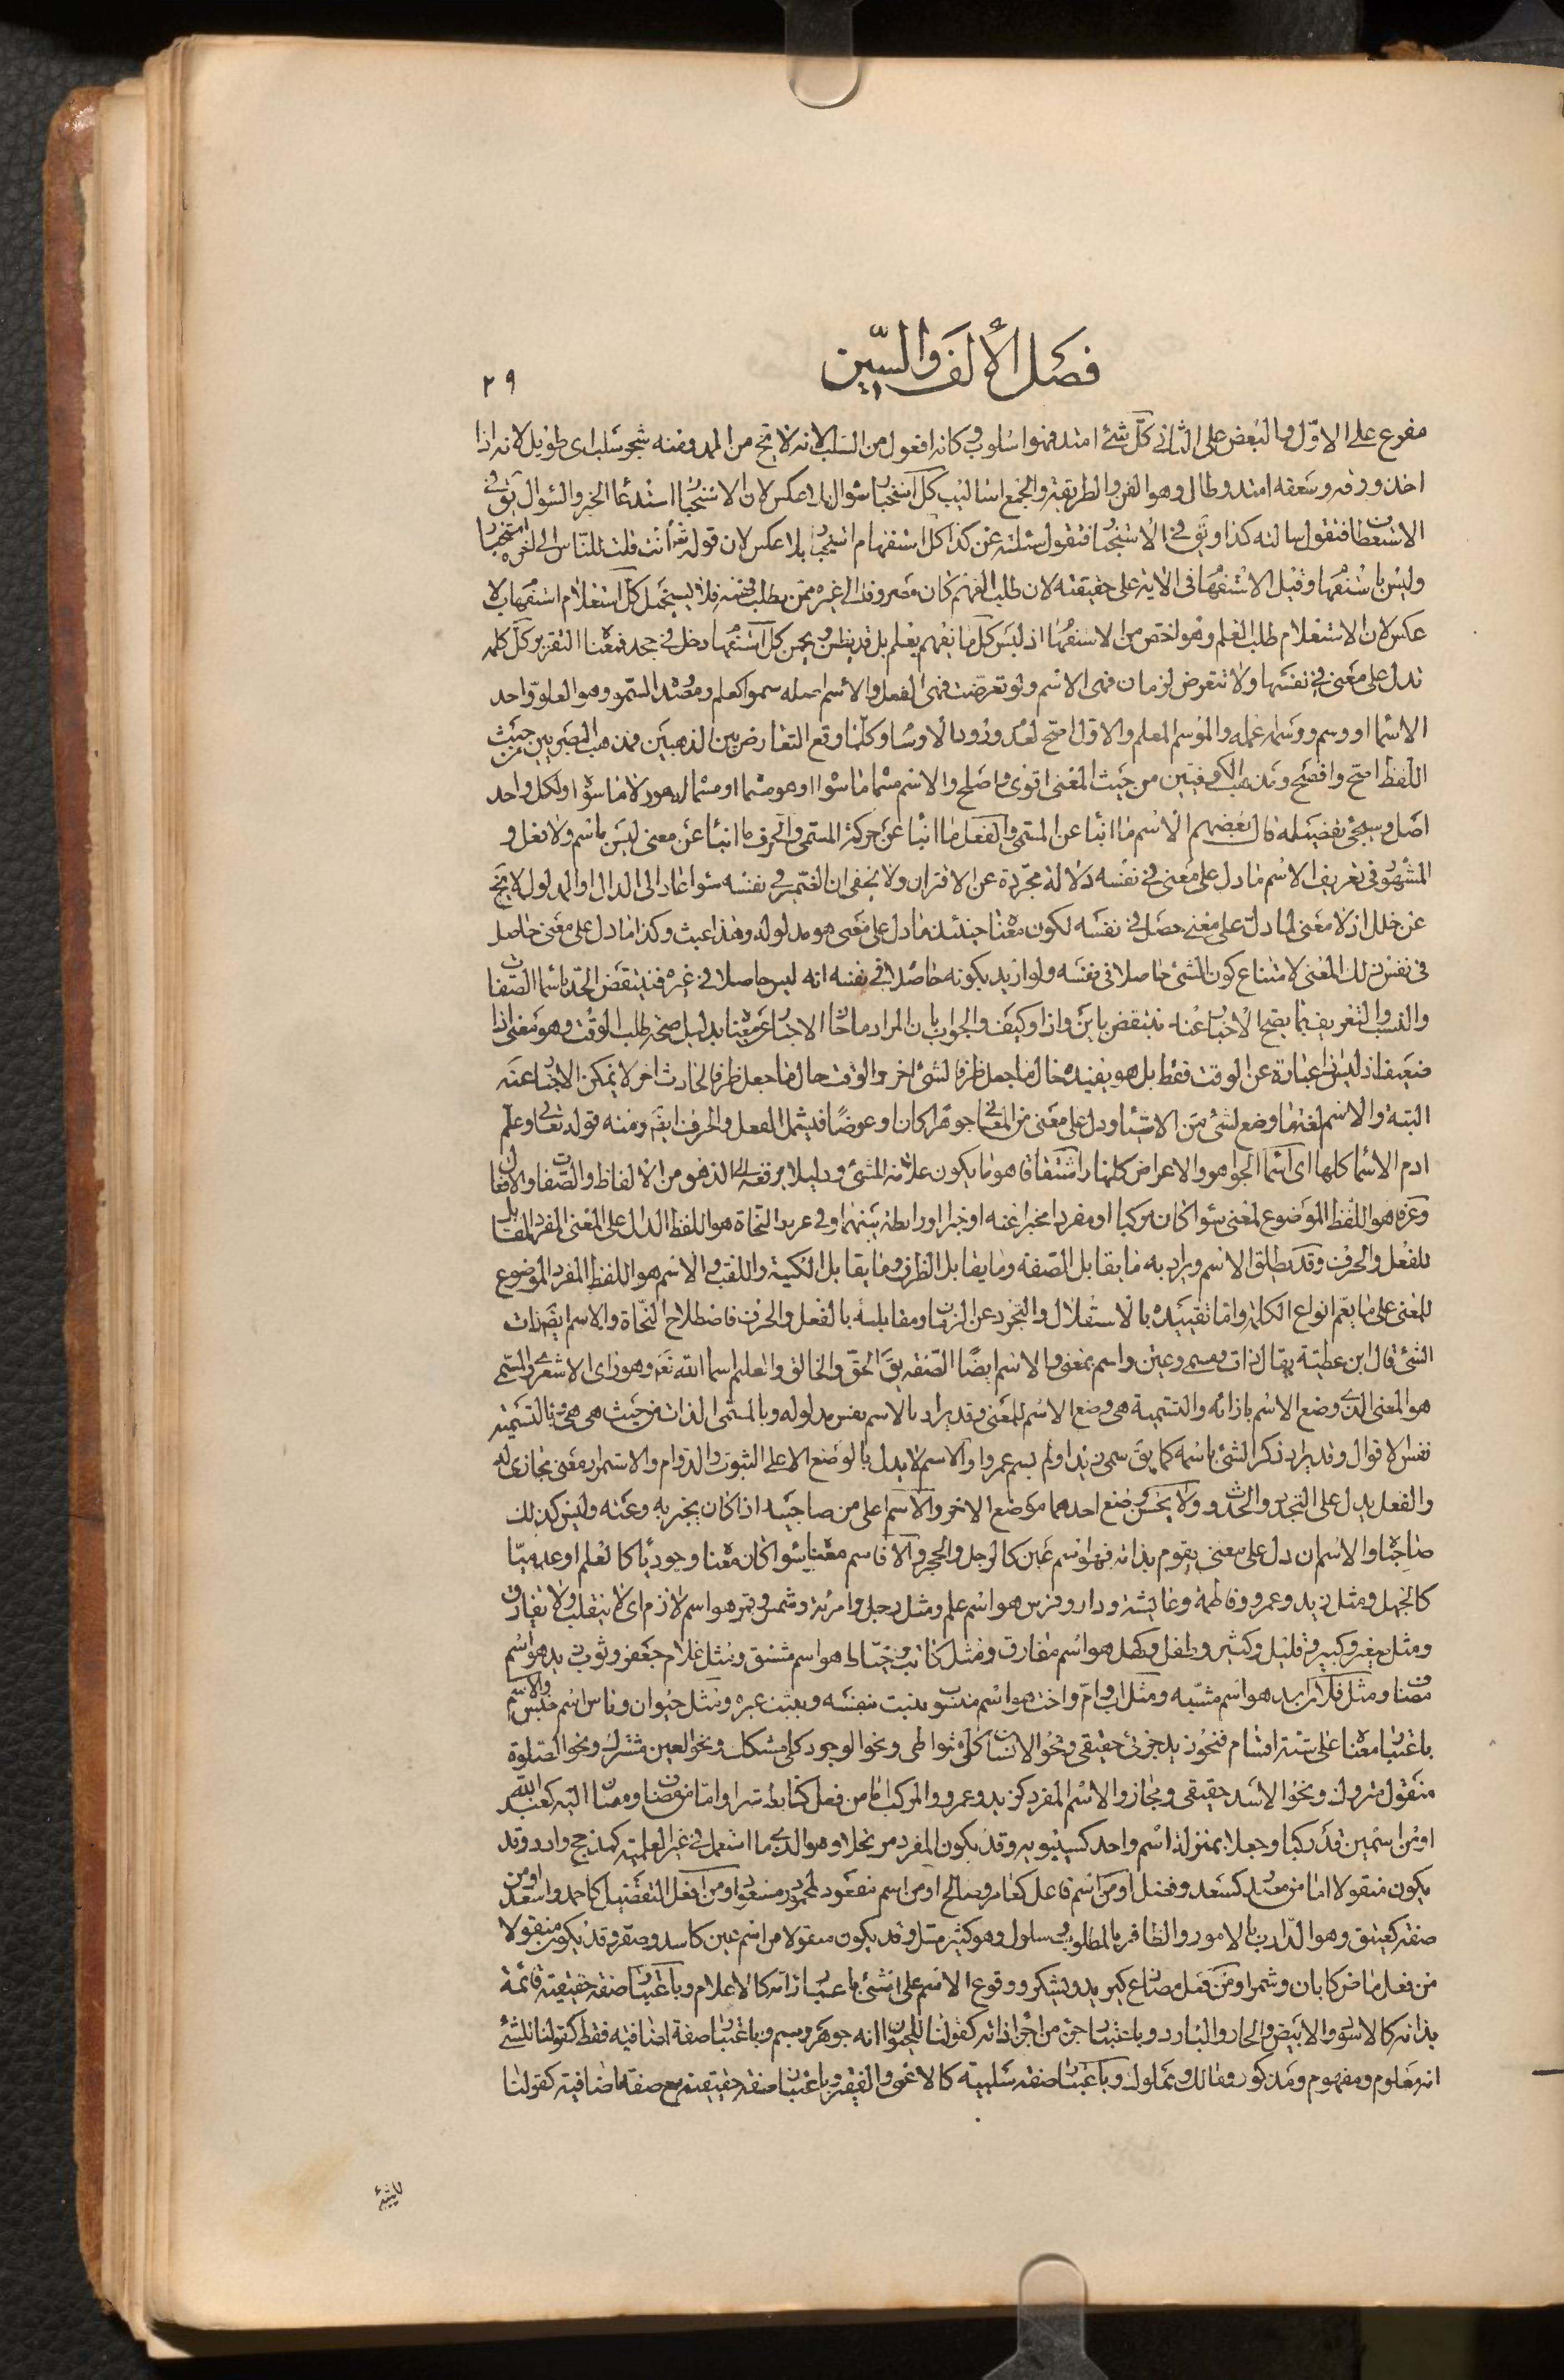 فصل الألف والسين
٢٩
مفرع على الاول والبعض على الثانى كل شئ امتد فهو اسلوب وكانه افعول من السلب لانه لا يخ من المد ومنه شجر سلب اى طويل لانه اذا
اخذ ورقه وسعفه امتد وطال وهو الفن والطريقة والجمع اساليب كل استخبار سؤال بلا عكس لان الاستخبار استدعاء الخبر والسؤال يق فى
الاستعطاف فتقول سالته كذا ويق فى الاستخبار فتقول سئلته عن كذا كل استفهام استخبار بلا عكس لان قوله تع أأنت قلت للناس الى اخره استخبار
وليس باستفهام وقيل الاستفهام فى الاية على حقيقته لان طلب الفهم كان مصروفا الى غيره ممن يطلب فهمه فلا يستحيل كل استعلام استفهام بلا
عكس لان الاستعلام طلب العلم وهو اخص من الاستفهام اذ ليس كل ما يفهم يعلم بل قد يظن ويخمن كل استفهام دخل فى جحد فمعناه التقرير كل كلمه
تدل على معنى فى نفسها ولا تتعرض لزمان فهى الاسم ولو تعرضت فهى الفعل والاسم اصله سمو كعلم ومصدره السمو وهو العلو واحد
الاسماء او وسم ووسمه علمه والموسم المعلم والاول اصح لعدم ورود الاوسام وكلما وقع التعارض بين المذهبين فمذهب البصريين من حيث
اللفظ اصح وافصح ومذهب الكوفيين من حيث المعنى اقوى واصلح والاسم مسماه ما سواه او هو مسماه او مسماه لا هو ولا ما سواه اولكل واحد
اصل وسيجئ تفصيله قال بعضهم الاسم ما انبأ عن المسمى والفعل ما انبأ عن حركة المسمى والحرف ما انبأ عن معنى ليس باسم ولا فعل و
المشهور فى تعريف الاسم ما دل على معنى فى نفسه دلالة مجردة عن الاقتران ولا يخفى ان الضمير فى نفسه سواء عاد الى الدال او المدلول لا يخ
عن خلل اذ لا معنى لما دل على معنى حصل فى نفسه لكون معناه حينئذ ما دل على معنى هو مدلوله وهذا عبث وكذا ما دل على معنى حاصل
فى نفس ذلك المعنى لامتناع كون الشئ حاصلا فى نفسه ولو اريد بكونه حاصلا فى نفسه انه ليس حاصلا فى غيره فينتقض الحد باسماء الصفات
والنسب والتعريف بما يصح الاخبار عنه ينتقض باين واذا وكيف والجواب بان المراد ما جاز الاخبار عن معناه بدليل صحة طلب الوقت وهو معنى اذا
ضعيف اذ ليس اذا عبارة عن الوقت فقط بل هو يفيده حال ما جعل ظرفا لشئ اخر والوقت حال ما جعل ظرفا لحادث اخر لا يمكن الاخبار عنه
البتة والاسم لغة ما وضع لشئ من الاشياء ودل على معنى من المعانى جوهرا كان او عرضا فيشمل الفعل والحرف ايضا ومنه قوله تعالى وعلم
ادم الاسماء كلها اى اسماء الجواهر والاعراض كلها واشتقاقا هو ما يكون علامة للشئ ودليلا يرفعه الى الذهن من الالفاظ والصفات والافعال
وعرفا هو اللفظ الموضوع لمعنى سواء كان مركبا او مفردا مخبرا عنه او خبرا او رابطة بينهما وفى عرف النحاة هو اللفظ الدال على المعنى المفرد المقابل
للفعل والحرف وقد يطلق الاسم ويراد به ما يقابل الصفة وما يقابل الظرف وما يقابل الكنية واللقب والاسم هو اللفظ المفرد الموضوع
للمعنى على ما يعم انواع الكلمة واما تقييده بالاستقلال والتجرد عن الزمان ومقابلته بالفعل والحرف فاصطلاح النحاة والاسم ايضا ذات
الشئ قال ابن عطية يقال ذات ومسمى وعين واسم بمعنى والاسم ايضا الصفة يق الحق والخالق والعليم اسماء الله تع وهو راى الاشعرى والمسمى
هو المعنى الذى وضع الاسم بازائه والتسمية هى وضع الاسم للمعنى وقد يراد بالاسم نفس مدلوله وبالمسمى الذات من حيث هى هى وبالتسمية
نفس الاقوال وقد يراد ذكر الشئ باسمه كما يق سمى زيدا ولم يسم عمروا والاسم لا يدل بالوضع الا على الثبوت والدوام والاستمرار معنى مجازى له
والفعل يدل على التجدد والحدوث ولا يحسن وضع احدهما موضع الاخر والاسم اعلى من صاحبيه اذا كان يخبر به وعنه وليس كذلك
صاحباه والاسم ان دل على معنى يقوم بذاته فهو اسم عين كالرجل والحجر والا فاسم معنى سواء كان معناه وجوديا كالعلم او عدميا
كالجهل ومثل زيد وعمرو وفاطمة وعايشة ودار وفرس هو اسم علم ومثل رجل وامرئة وشمس وقمر هو اسم لازم اى لا ينقلب ولا يفارق
ومثل صغير وكبير وقليل وكثير وطفل وكهل هو اسم مفارق ومثل كاتب وخياط هو اسم مشتق ومثل غلام جعفر وثوب زيد هو اسم
مضاف ومثل فلان اسد هو اسم مشبه ومثل اب وام واخت هو اسم منسوب يثبت بنفسه ويثبت غيره ومثل حيوان وناس اسم جنس والاسم
باعتبار معناه على ستة اقسام فنحو زيد جزئى حقيقى ونحو الانسان كلى متواطى ونحو الوجود كلى مشكك ونحو العين مشترك ونحو الصلوة
منقول متروك ونحو الاسد حقيقى ومجاز والاسم المفرد كزيد وعمرو والمركب اما من فعل كتابط شرا واما من مضاف ومضاف اليه كعبد الله
او من اسمين قد ركبا وجعلا بمنزلة اسم واحد كسيبويه وقد يكون المفرد مرتجلا وهو الذى ما استعمل فى غير العلمية كمذحج وادد وقد
يكون منقولا اما من مصدر كسعد وفضل او من اسم فاعل كعامر وصالح او من اسم مفعول كمحمود ومسعود او من افعل التفضيل كاحمد واسعد او من
صفة كعتيق وهو الدارب بالامور والظافر بالمطلوب وسلول وهو كثير السل وقد يكون منقولا من اسم عين كاسد وصقر وقد يكون منقولا
من فعل ماض كابان وشمر او من فعل مضارع كيزيد ويشكر ووقوع الاسم على الشئ باعتبار ذاته كالاعلام وباعتبار صفة حقيقية قائمة
بذاته كالاسود والابيض والحار والبارد وباعتبار جزء من اجزاء ذاته كقولنا للحيوان انه جوهر وجسم وباعتبار صفة اضافية فقط كقولنا للشئ
انه معلوم ومفهوم ومذكور ومالك ومملوك وباعتبار صفة سلبية كالاعمى والفقير وباعتبار صفة حقيقية مع صفة اضافية كقولنا
للشئ